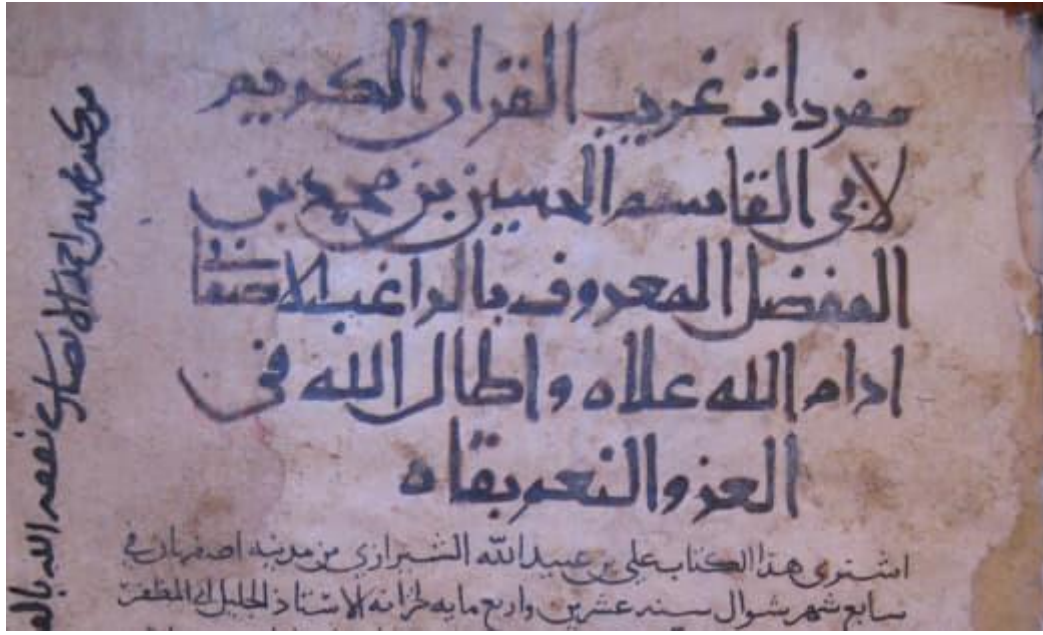 مفردات غريب القران الكريم
لابي القاسم الحسين بن محمد بن
المفضل المعروف بالراغب الاصفهاني
ادام الله علاه واطال الله في
العز والنعم بقاه
اشترى هذا الكتاب علي بن عبيد الله الشيرازي من مدينه اصفهان في
سابع شهر شوال سنه عشرين واربع مايه لخزانه الاستاذ الجليل ابي المظفر
احمد الانصاري نفعه الله